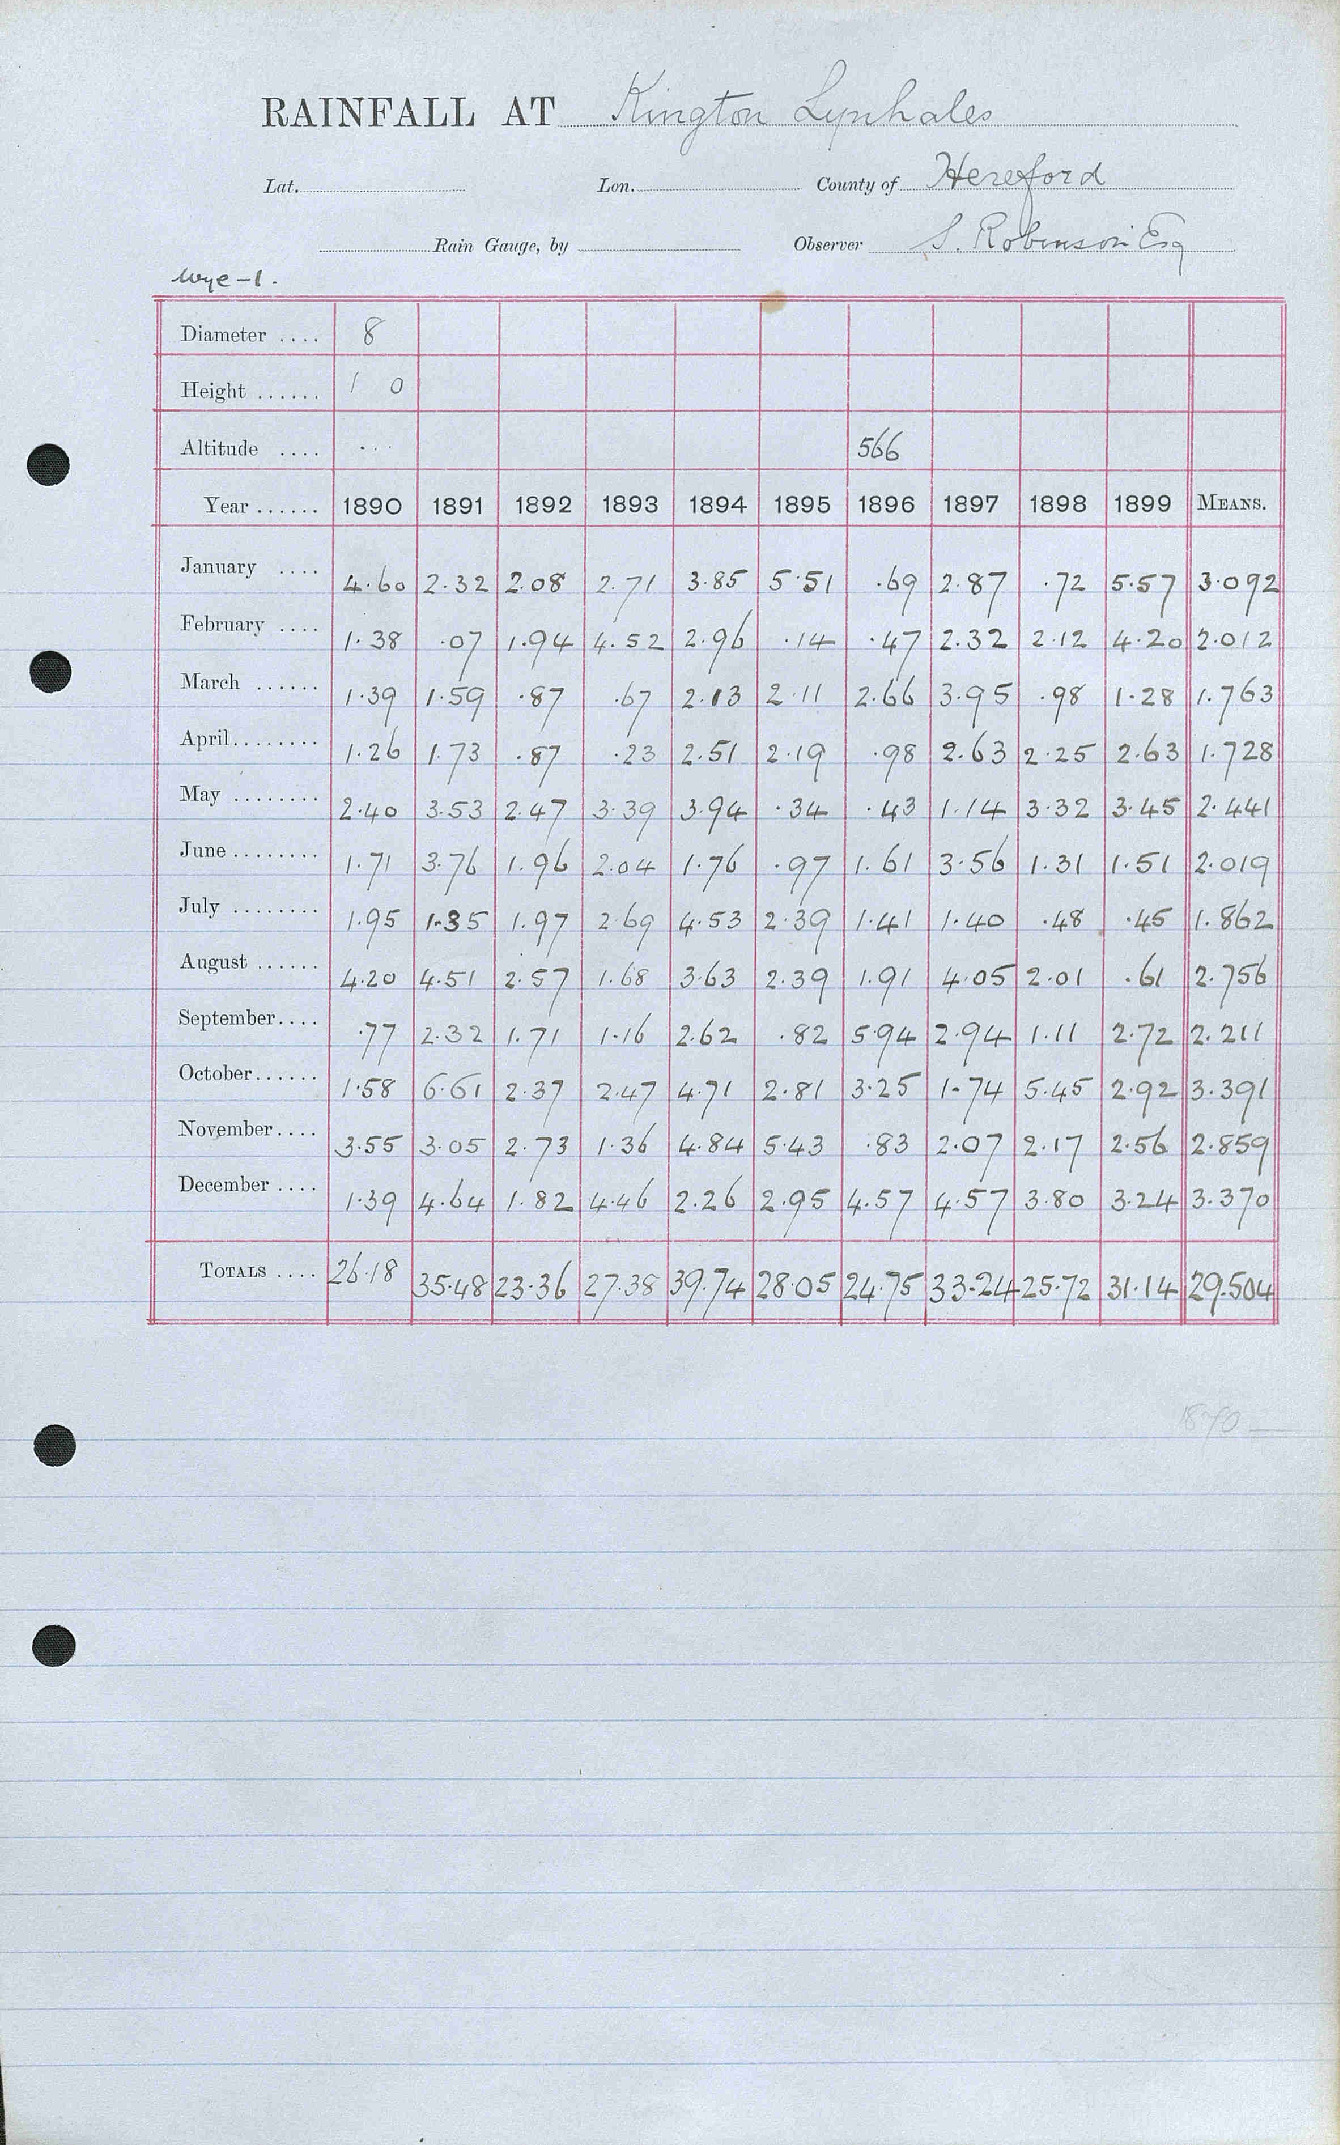 RAINFALL AT Kington Lynhales
Lat. Lon. County of Hereford
Rain Gauge, by Observer S. Robinson Esq
Wye-1.
Diameter .... 8
Height ...... 1 0
Altitude .... ... 566
Year ...... 1890 1891 1892 1893 1894 1895 1896 1897 1898 1899 MEANS.
January .... 4.60 2.32 2.08 2.71 3.85 5.51 .69 2.87 .72 5.57 3.092
February .... 1.38 .07 1.94 4.52 2.96 .14 .47 2.32 2.12 4.20 2.012
March ...... 1.39 1.59 .87 .67 2.13 2.11 2.66 3.95 .98 1.28 1.763
April........ 1.26 1.73 .87 .23 2.51 2.19 .98 2.63 2.25 2.63 1.728
May ........ 2.40 3.53 2.47 3.39 3.94 .34 .43 1.14 3.32 3.45 2.441
June........ 1.71 3.76 1.96 2.04 1.76 .97 1.61 3.56 1.31 1.51 2.019
July ........ 1.95 1.35 1.97 2.69 4.53 2.39 1.41 1.40 .48 .45 1.862
August ...... 4.20 4.51 2.57 1.68 3.63 2.39 1.91 4.05 2.01 .61 2.756
September.... .77 2.32 1.71 1.16 2.62 .82 5.94 2.94 1.11 2.72 2.211
October...... 1.58 6.61 2.37 2.47 4.71 2.81 3.25 1.74 5.45 2.92 3.391
November.... 3.55 3.05 2.73 1.36 4.84 5.43 .83 2.07 2.17 2.56 2.859
December .... 1.39 4.64 1.82 4.46 2.26 2.95 4.57 4.57 3.80 3.24 3.370
TOTALS .... 26.18 35.48 23.36 27.38 39.74 28.05 24.75 33.24 25.72 31.14 29.504
1870 —